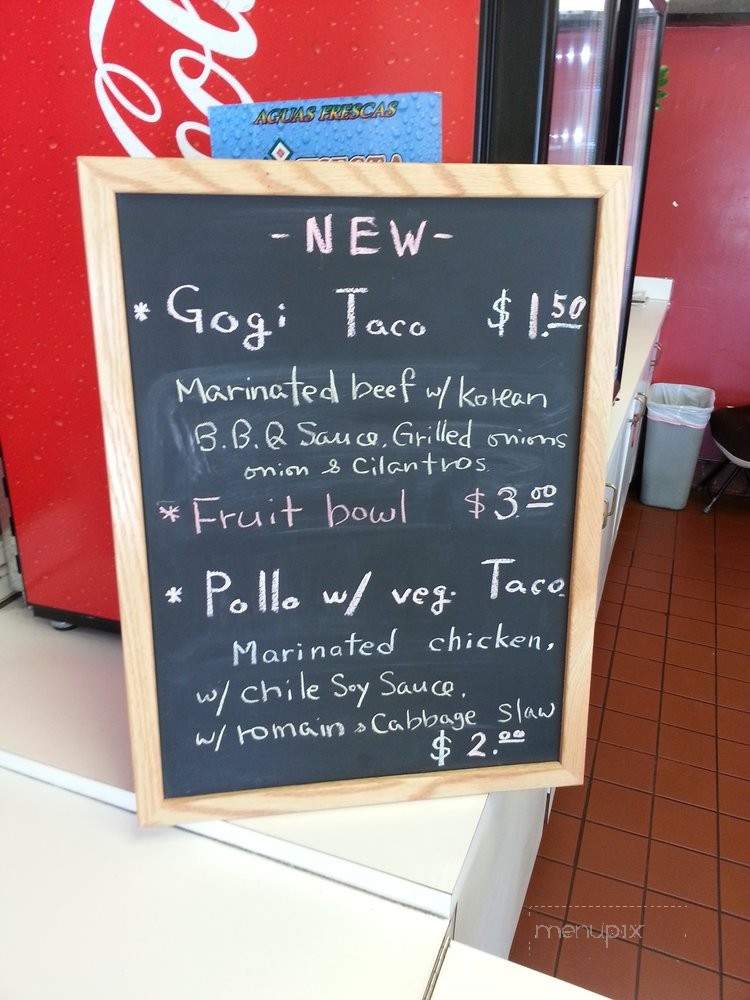 Cola
AGUAS FRESCAS
FIESTA
-NEW-
* Gogi Taco $1.50
Marinated beef w/ Korean
B.B.Q Sauce, Grilled onions
onion & Cilantros
* Fruit bowl $3.00
* Pollo w/ veg. Taco
Marinated chicken,
w/ chile Soy Sauce,
w/ romain & Cabbage Slaw
$2.00
menupix